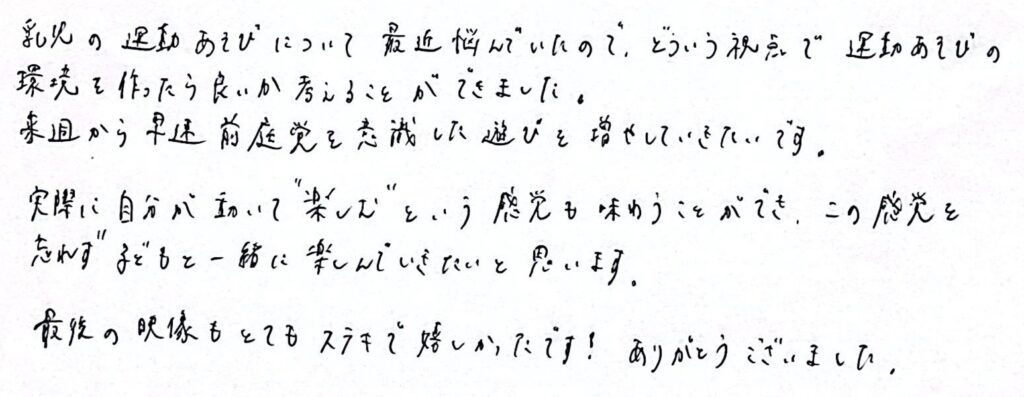 乳児の運動あそびについて 最近悩んでいたので、どういう視点で 運動あそびの
環境を作ったら良いか考えることができました。
来週から早速 前庭覚を意識した遊びを増やしていきたいです。
実際に自分が動いて"楽しむ"という感覚も味わうことができ、この感覚を
忘れず"子どもと一緒に楽しんでいきたいと思います。
最後の映像もとてもステキで嬉しかったです! ありがとうございました。